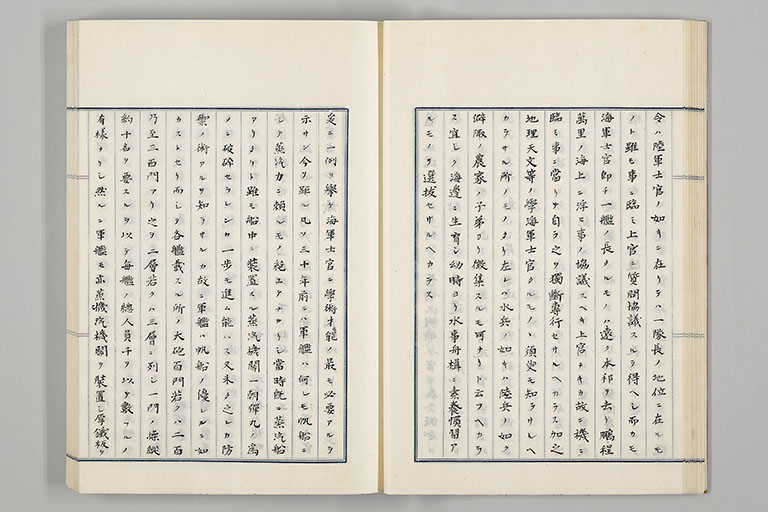 令ハ陸軍士官ノ如キニ在リテハ一隊長ノ地位ニ在ルモ
ノト雖モ事ニ臨ミ上官ニ質問協議スルヲ得ヘシ而カモ
海軍士官即チ一艦ノ長タルモノハ遠ク本邦ヲ去リ鵬程
萬里ノ海上ニ浮ヒ事ノ協議スヘキ上官ナキカ故ニ機ニ
臨ミ事ニ當リ自ラ之ヲ獨斷專行セサルヘカラス加之
地理天文等ノ學海軍士官タルモノハ須臾モ知ラサルヘ
カラサル所ノモノタリ左レハ水兵ノ如キハ陸兵ノ如ク
僻陬ノ農家ノ子弟ヨリ徴集スルモ可ナリト云フヘカラ
ス宜シク海邊ニ生育シ幼時ヨリ水事舟楫ニ素養慣習ア
ルモノヲ選拔セサルヘカラス
爰ニ一例ヲ擧ケ海軍士官ニ學術才能ノ最モ必要アルヲ
示サン今ヲ距ル凡ソ三十年前ニハ軍艦ハ何レモ帆船ニ
シテ蒸汽力ニ頼ルモノ絶エテナカリシ當時既ニ蒸汽船
アリタリト雖モ船中ニ裝置スル蒸汽機關一朝彈丸ノ為
メニ破碎セラレンカ一歩モ進ム能ハス又未タ之レカ防
禦ノ術アルヲ知ラサルカ故ニ軍艦ハ帆船ノ優レルニ如
カストセリ而シテ各艦載スル所ノ大砲百門若クハ二百
乃至三百門アリ之ヲ二層若クハ三層ニ列シ一門ノ操縱
約十名ヲ要スルヲ以テ毎艦ノ總人員千ヲ以テ數フルノ
有様ナリシ然ルニ軍艦モ亦蒸汽機關ヲ裝置シ厚鐵板ヲ